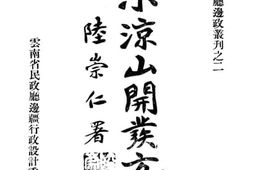 廳邊政叢刊之二
小涼山開發方
陸崇仁署
雲南省民政廳邊疆行政設計委